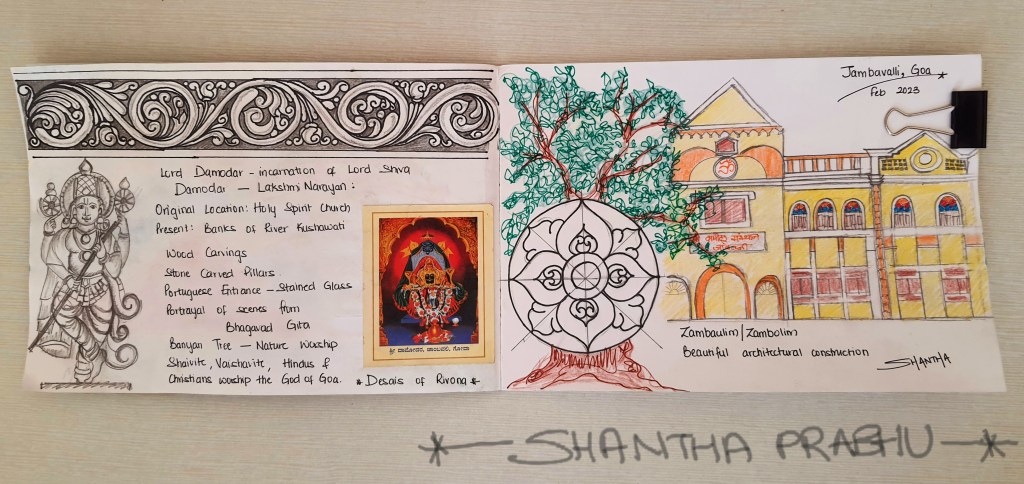 Lord Damodar - incarnation of Lord Shiva
Damodar — Lakshmi Narayan :
Original Location: Holy Spirit Church
Present: Banks of River Kushawati
Wood Carvings
Stone Carved Pillars
Portuguese Entrance - Stained Glass
Portrayal of scenes from
Bhagavad Gita
Banyan Tree - Nature Worship
Shaivite, Vaishavite, Hindus &
Christians worship the God of Goa.
* Desais of Rivona *
Jambavalli, Goa
Feb 2023
Zambaulim/Zambolim
Beautiful architectural construction
SHANTHA
SHANTHA PRABHU